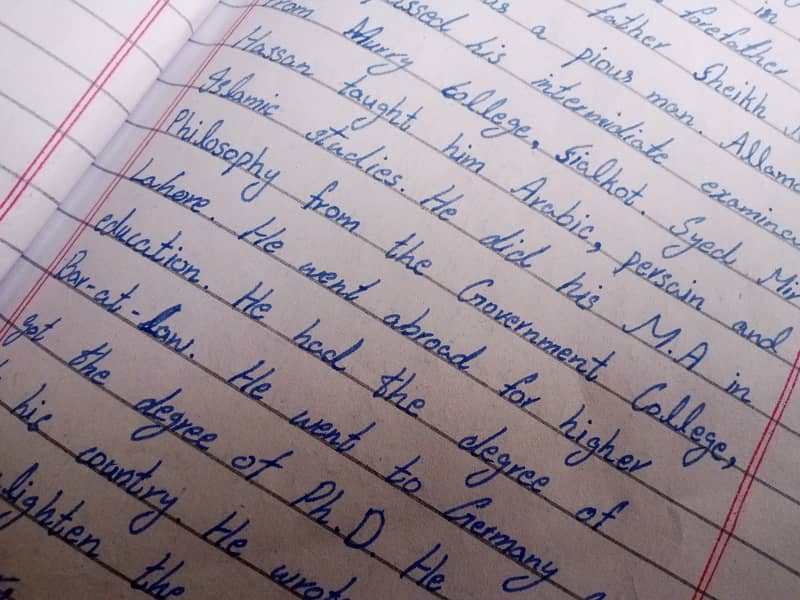 in
forefather
father Sheikh
was a pious man. Allama
passed his intermidiate
from Murry College, Sialkot. Syed Mir
Hassan taught him Arabic, persain and
Islamic studies. He did his M.A in
Philosophy from the Government College,
Lahore. He went abroad for higher
education. He had the degree of
Bar-at-law. He went to Germany
got the degree of Ph.D. He
his country. He wrote
lighten the